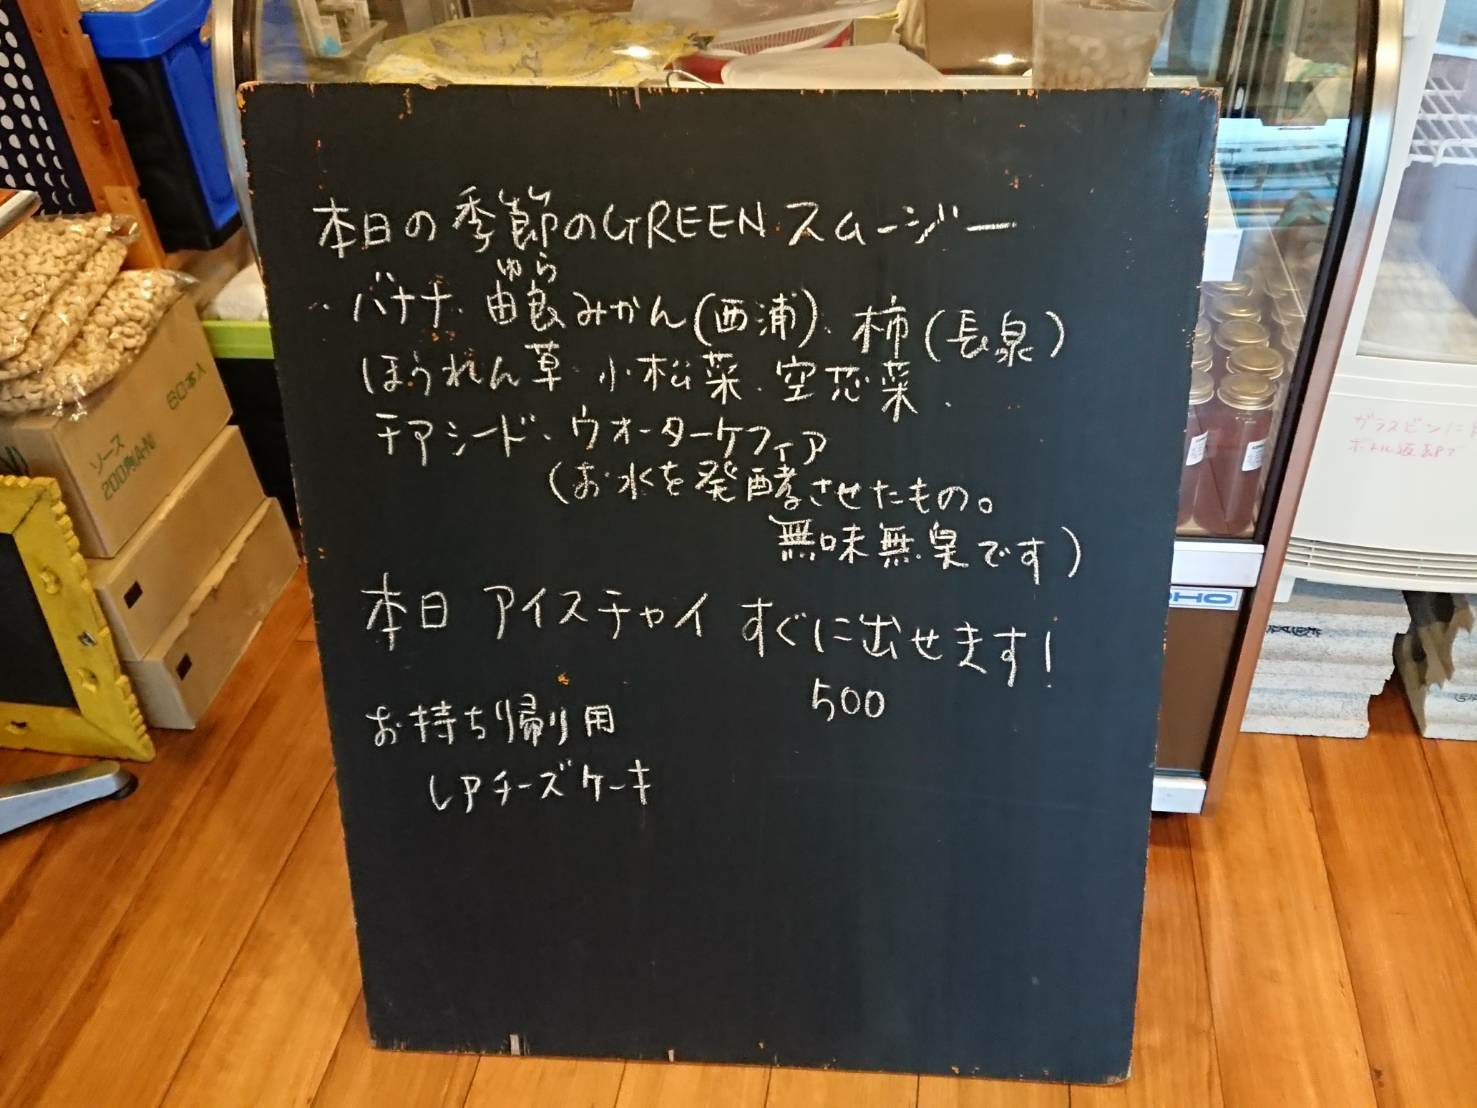 本日の季節のGREENスムージー
ゆら
バナナ・由良みかん(西浦)・柿(長泉)
ほうれん草・小松菜・空芯菜・
チアシード・ウォーターケフィア
(お水を発酵させたもの。
無味無臭です)
本日 アイスチャイ すぐに出せます!
500
お持ち帰り用
レアチーズケーキ
60本入
ソース
200角(A-N)
ガラスビンに